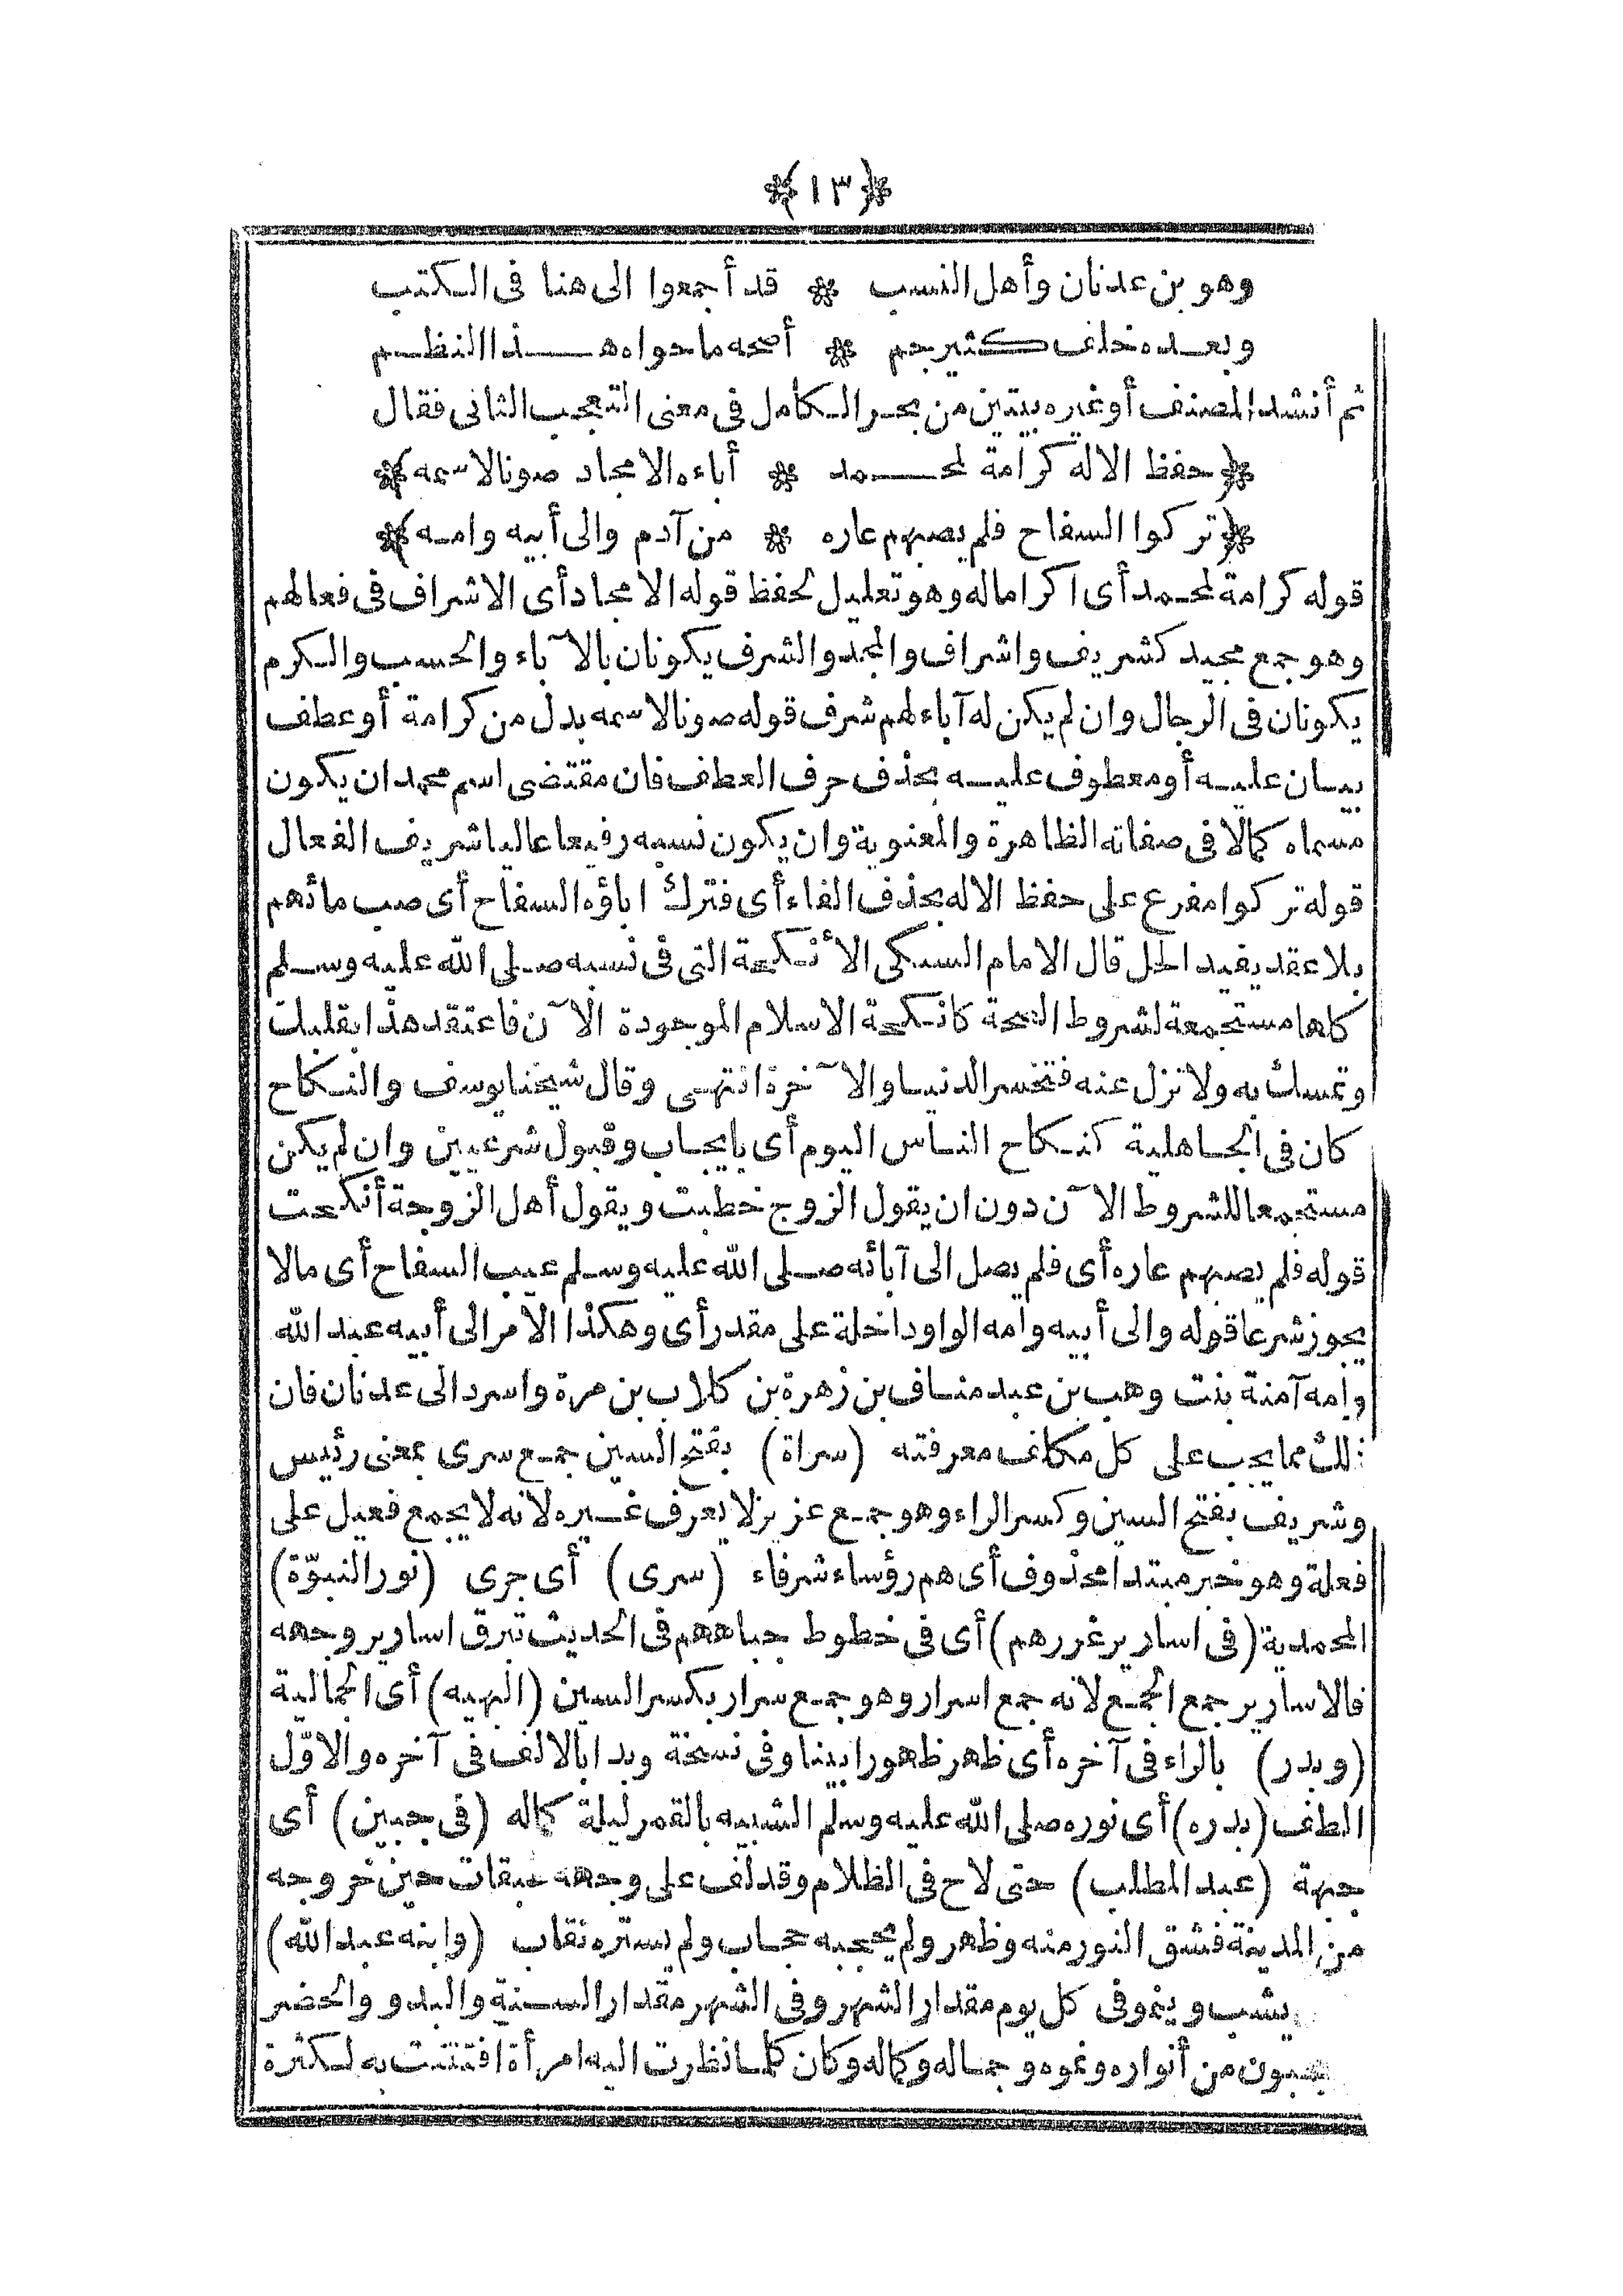 ﴿١٣﴾
وهو بن عدنان وأهل النسب * قد أجمعوا الى هنا فى الكتب
وبعده خلف كثير جم * أصحه ما حواه هذا النظم
ثم أنشد المصنف أو غيره بيتين من بحر الكامل فى معنى التعجب الثانى فقال
﴿حفظ الاله كرامة لمحمد * أباءه الامجاد صونا لاسمه﴾
﴿تركوا السفاح فلم يصبهم عاره * من آدم والى أبيه وامه﴾
قوله كرامة لمحمد أى اكراما له وهو تعليل لحفظ قوله الامجاد أى الاشراف فى فعالهم
وهو جمع مجيد كشريف واشراف والمجد والشرف يكونان بالآباء والحسب والكرم
يكونان فى الرجال وان لم يكن له آباء لهم شرف قوله صونا لاسمه بدل من كرامة أو عطف
بيان عليه أو معطوف عليه بحذف حرف العطف فان مقتضى اسم محمد ان يكون
مسماه كاملا فى صفاته الظاهرة والمعنوية وان يكون نسبه رفيعا عاليا شريف الفعال
قوله تركوا مفرع على حفظ الاله بحذف الفاء أى فترك اباؤه السفاح أى صب مائهم
بلا عقد يفيد الحل قال الامام السبكى الأنكحة التى فى نسبه صلى الله عليه وسلم
كلها مستجمعة لشروط الصحة كانكحة الاسلام الموجودة الآن فاعتقد هذا بقلبك
وتمسك به ولا تزل عنه فتخسر الدنيا والآخرة انتهى وقال شيخنا يوسف والنكاح
كان فى الجاهلية كنكاح الناس اليوم أى بايجاب وقبول شرعيين وان لم يكن
مستجمعا للشروط الآن دون ان يقول الزوج خطبت ويقول أهل الزوجة أنكحت
قوله فلم يصبهم عاره أى فلم يصل الى آبائه صلى الله عليه وسلم عيب السفاح أى مالا
يجوز شرعا قوله والى أبيه وامه الواو داخلة على مقدر أى وهكذا الأمر الى أبيه عبد الله
وامه آمنة بنت وهب بن عبد مناف بن زهرة بن كلاب بن مرة واسرد الى عدنان فان
ذلك مما يجب على كل مكلف معرفته (سراة) بفتح السين جمع سرى بمعنى رئيس
وشريف بفتح السين وكسر الراء وهو جمع عزيز لا يعرف غيره لانه لا يجمع فعيل على
فعلة وهو خبر مبتدا محذوف أى هم رؤساء شرفاء (سرى) أى جرى (نور النبوّة)
المحمدية (فى اسارير غررهم) أى فى خطوط جباههم فى الحديث تبرق اسارير وجهه
فالاسارير جمع الجمع لانه جمع اسرار وهو جمع سرار بكسر السين (البهيه) أى الجمالية
(وبدر) بالراء فى آخره أى ظهر ظهورا بينا وفى نسخة وبدا بالالف فى آخره والاوّل
الطف (بدره) أى نوره صلى الله عليه وسلم الشبيه بالقمر ليلة كماله (فى جبين) أى
جبهة (عبد المطلب) حتى لاح فى الظلام وقد لف على وجهه طبقات حين خروجه
من المدينة فشق النور منه وظهر ولم يحجبه حجاب ولم يستره نقاب (وابنه عبد الله)
يشب وينمو فى كل يوم مقدار الشهر وفى الشهر مقدار السنة والبدو والحضر
يعجبون من أنواره ونموه وجماله وكماله وكان كلما نظرت اليه امرأة افتتنت به لكثرة